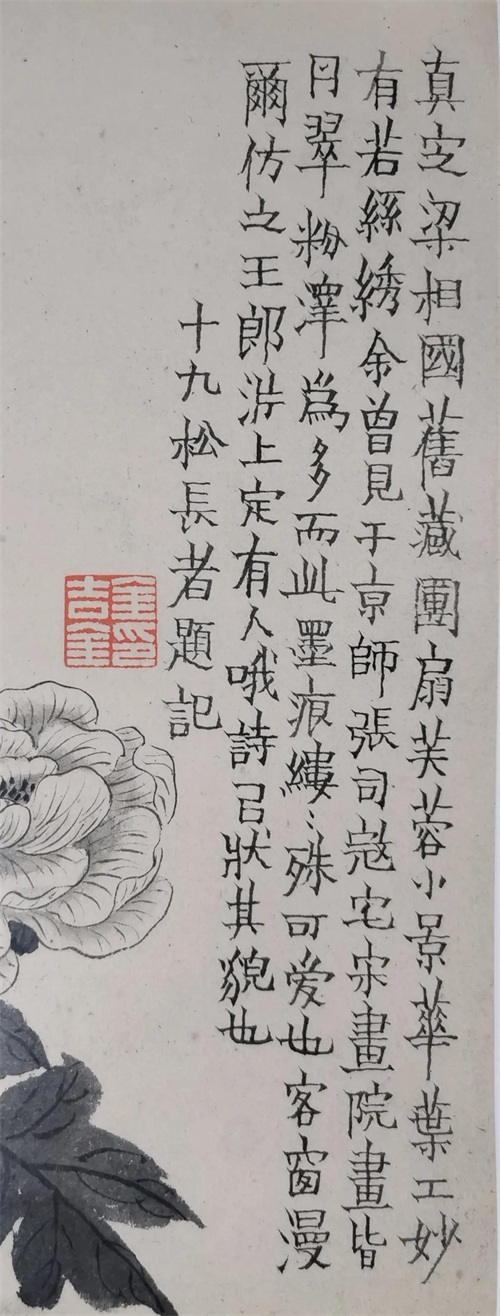 真定梁相國舊藏團扇芙蓉小景華葉工妙
有若絲綉余曾見于京師張司寇宅宋畫院畫皆
丹翠粉澤為多而此墨痕縷〻殊可愛也客窗漫
爾仿之王郎浜上定有人哦詩㠯狀其貌也
十九松長者題記
金吉金印